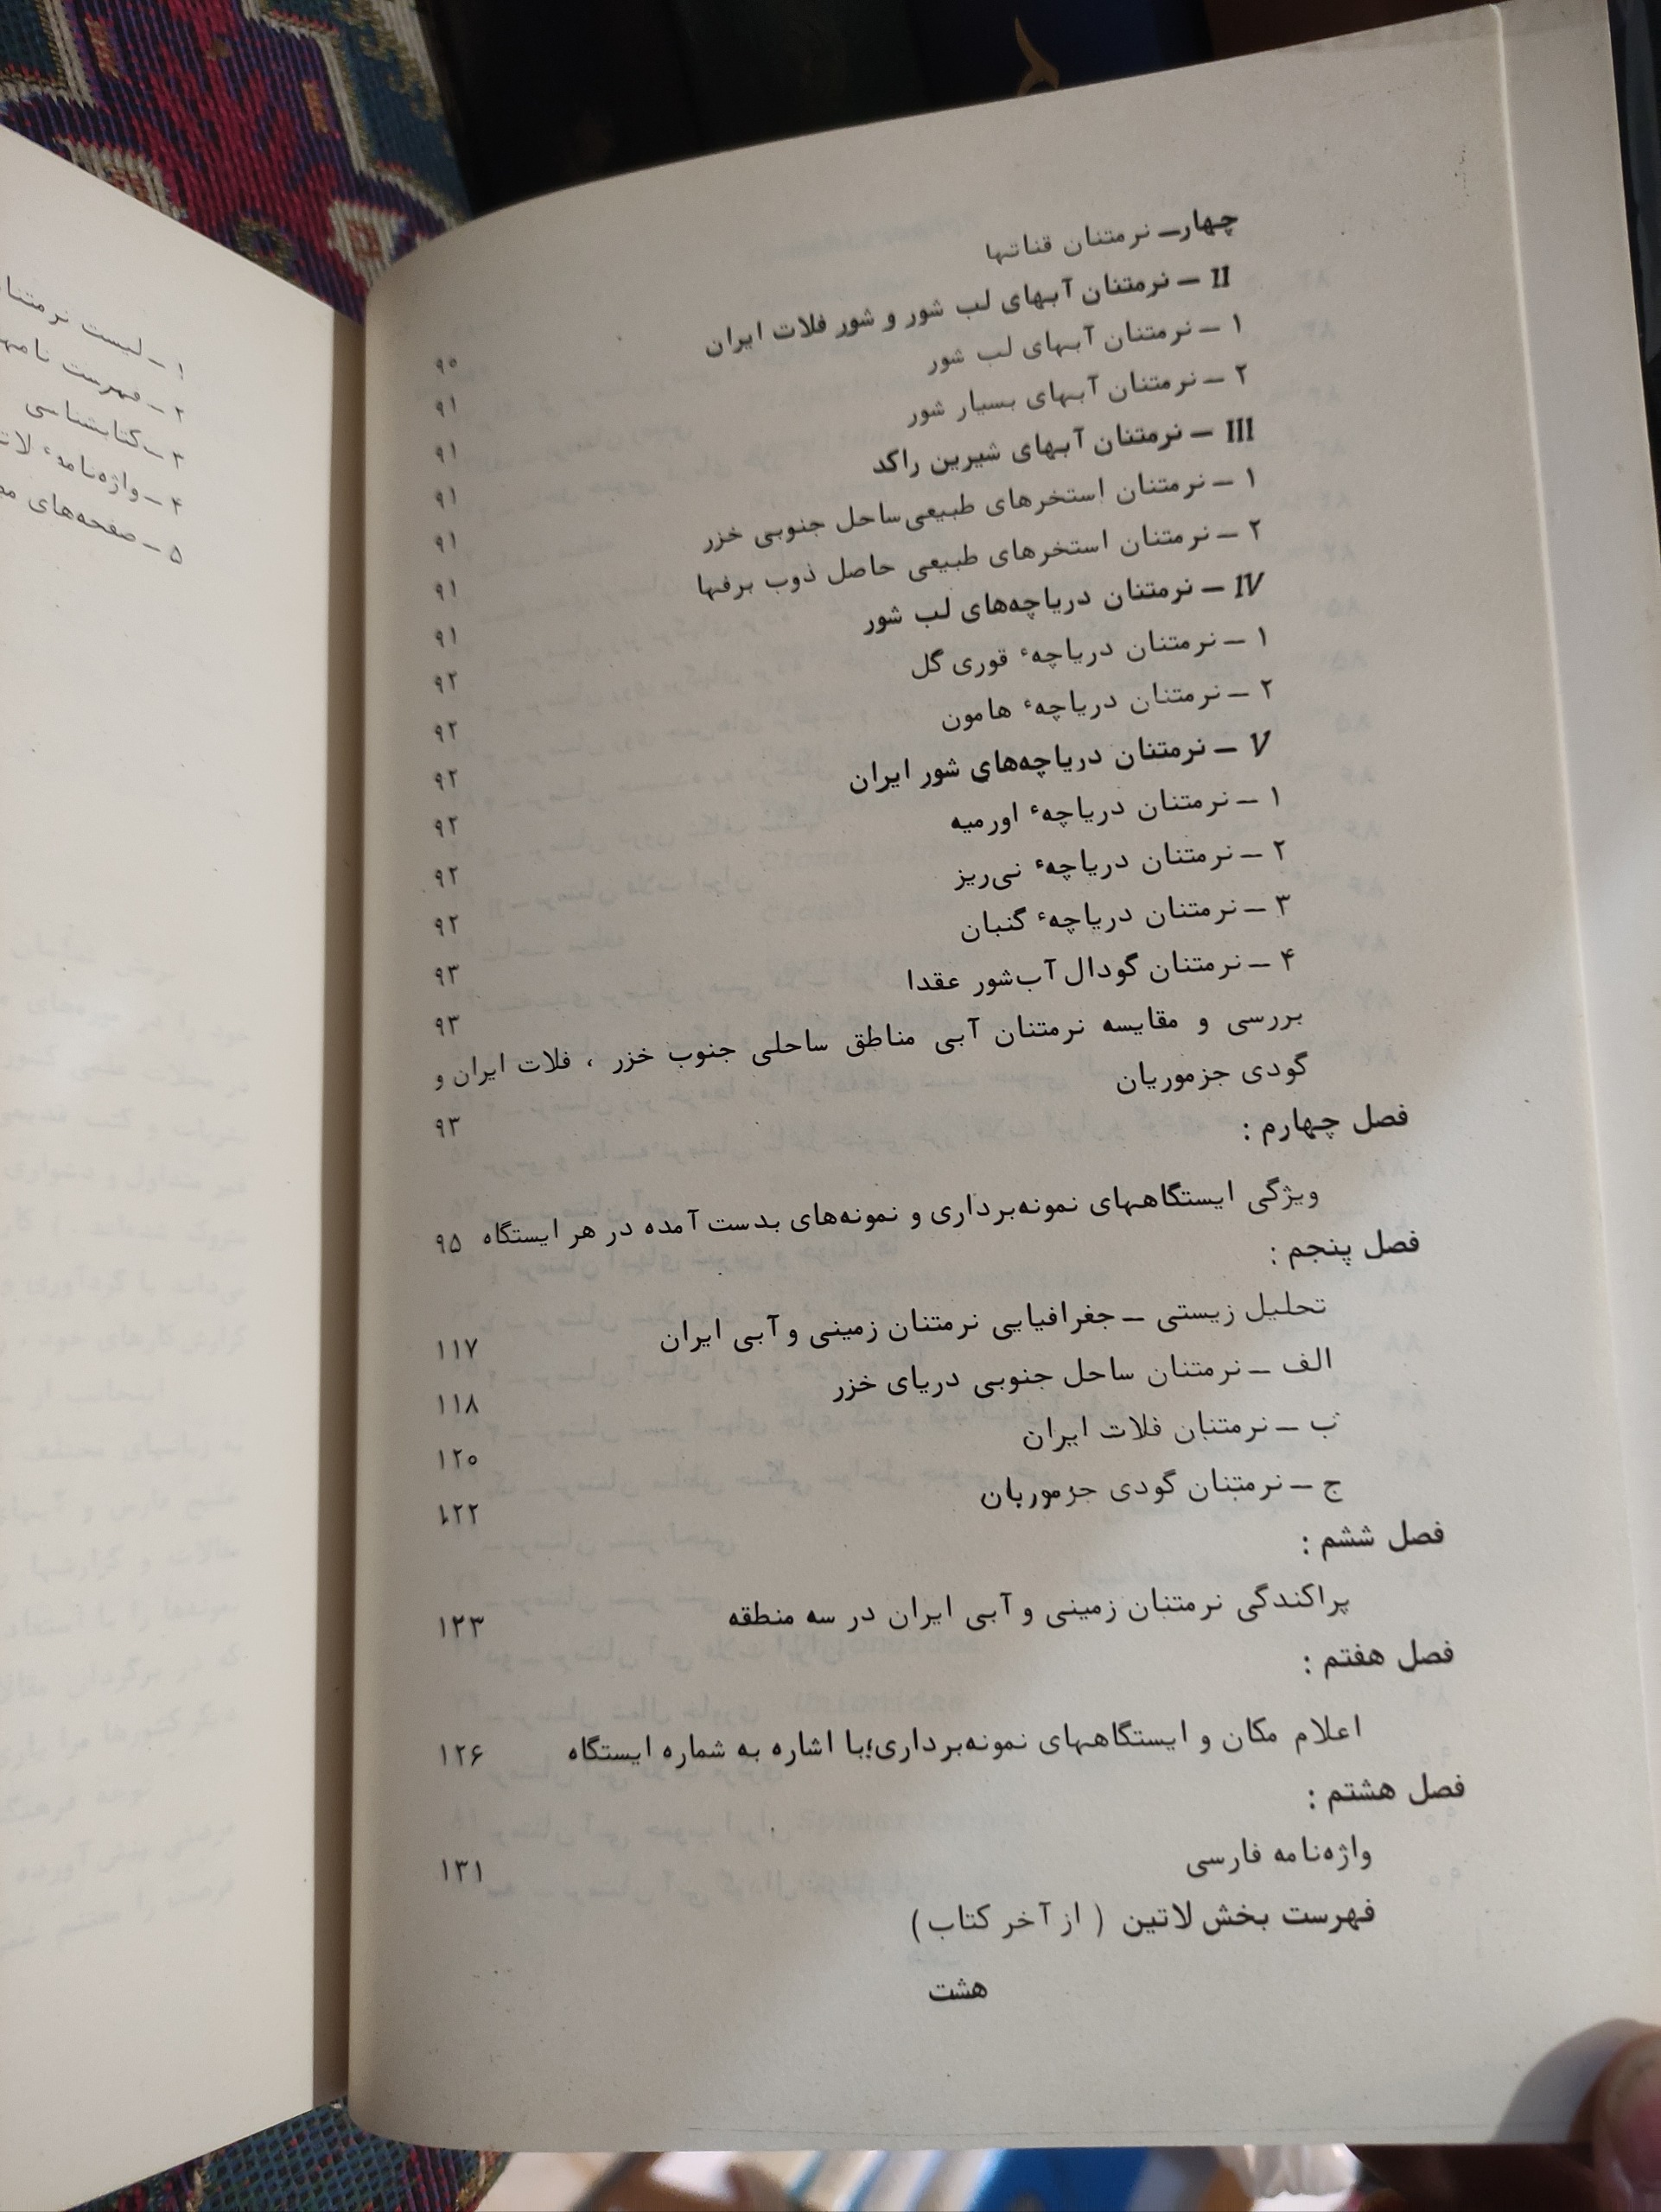 چهارـ نرمتنان قناتها ۹۰
II ـ نرمتنان آبهای لب شور و شور فلات ایران ۹۱
۱ ـ نرمتنان آبهای لب شور ۹۱
۲ ـ نرمتنان آبهای بسیار شور ۹۱
III ـ نرمتنان آبهای شیرین راکد ۹۱
۱ ـ نرمتنان استخرهای طبیعی ساحل جنوبی خزر ۹۱
۲ ـ نرمتنان استخرهای طبیعی حاصل ذوب برفها ۹۱
IV ـ نرمتنان دریاچه‌های لب شور ۹۲
۱ ـ نرمتنان دریاچهٔ قوری گل ۹۲
۲ ـ نرمتنان دریاچهٔ هامون ۹۲
V ـ نرمتنان دریاچه‌های شور ایران ۹۲
۱ ـ نرمتنان دریاچهٔ اورمیه ۹۲
۲ ـ نرمتنان دریاچهٔ نی‌ریز ۹۲
۳ ـ نرمتنان دریاچهٔ گنبان ۹۳
۴ ـ نرمتنان گودال آب‌شور عقدا ۹۳
بررسی و مقایسه نرمتنان آبی مناطق ساحلی جنوب خزر ، فلات ایران و
گودی جزموریان ۹۳
فصل چهارم :
ویژگی ایستگاههای نمونه‌برداری و نمونه‌های بدست آمده در هر ایستگاه ۹۵
فصل پنجم :
تحلیل زیستی ـ جغرافیایی نرمتنان زمینی و آبی ایران ۱۱۷
الف ـ نرمتنان ساحل جنوبی دریای خزر ۱۱۸
ب ـ نرمتنان فلات ایران ۱۲۰
ج ـ نرمتنان گودی جزموریان ۱۲۲
فصل ششم :
پراکندگی نرمتنان زمینی و آبی ایران در سه منطقه ۱۲۳
فصل هفتم :
اعلام مکان و ایستگاههای نمونه‌برداری؛با اشاره به شماره ایستگاه ۱۲۶
فصل هشتم :
واژه‌نامه فارسی ۱۳۱
فهرست بخش لاتین ( از آخر کتاب)
هشت
۱ ـ لیست
۲ ـ فهرست
۳ ـ کتابشناسی
۴ ـ واژه‌نامهٔ
۵ ـ صفحه‌های